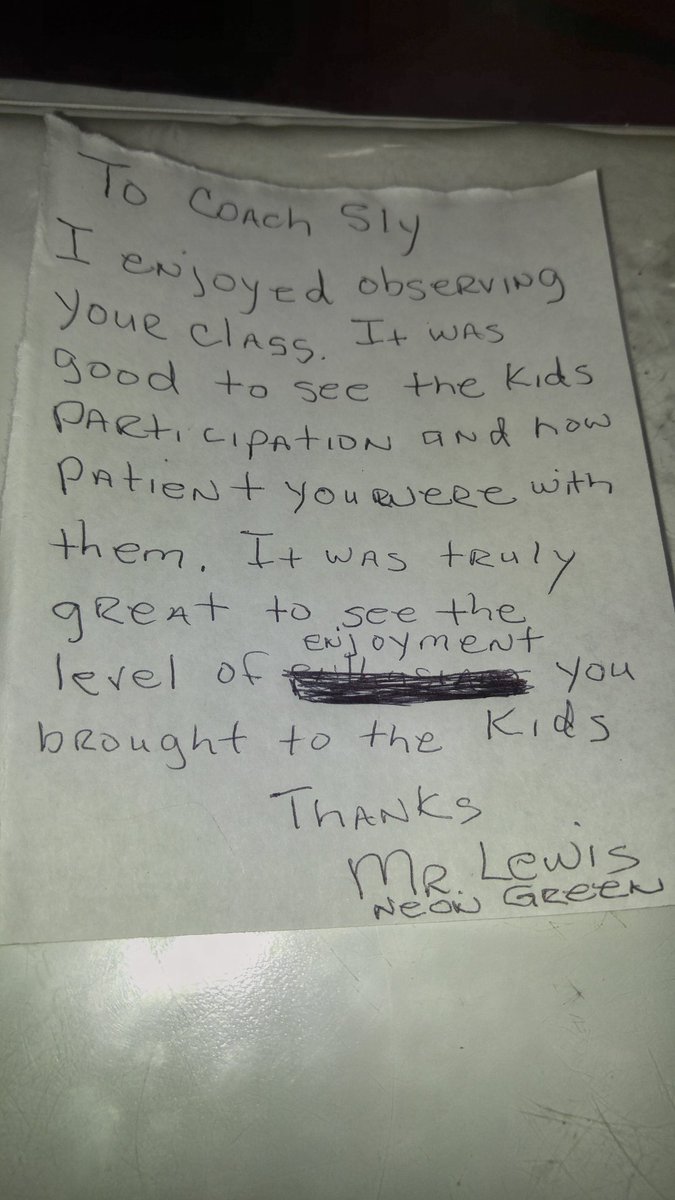 To Coach Sly
I enjoyed observing
your class. It was
good to see the kids
participation and how
patient you were with
them. It was truly
great to see the
enjoyment
level of you
brought to the kids
Thanks
Mr. Lewis
Neon Green